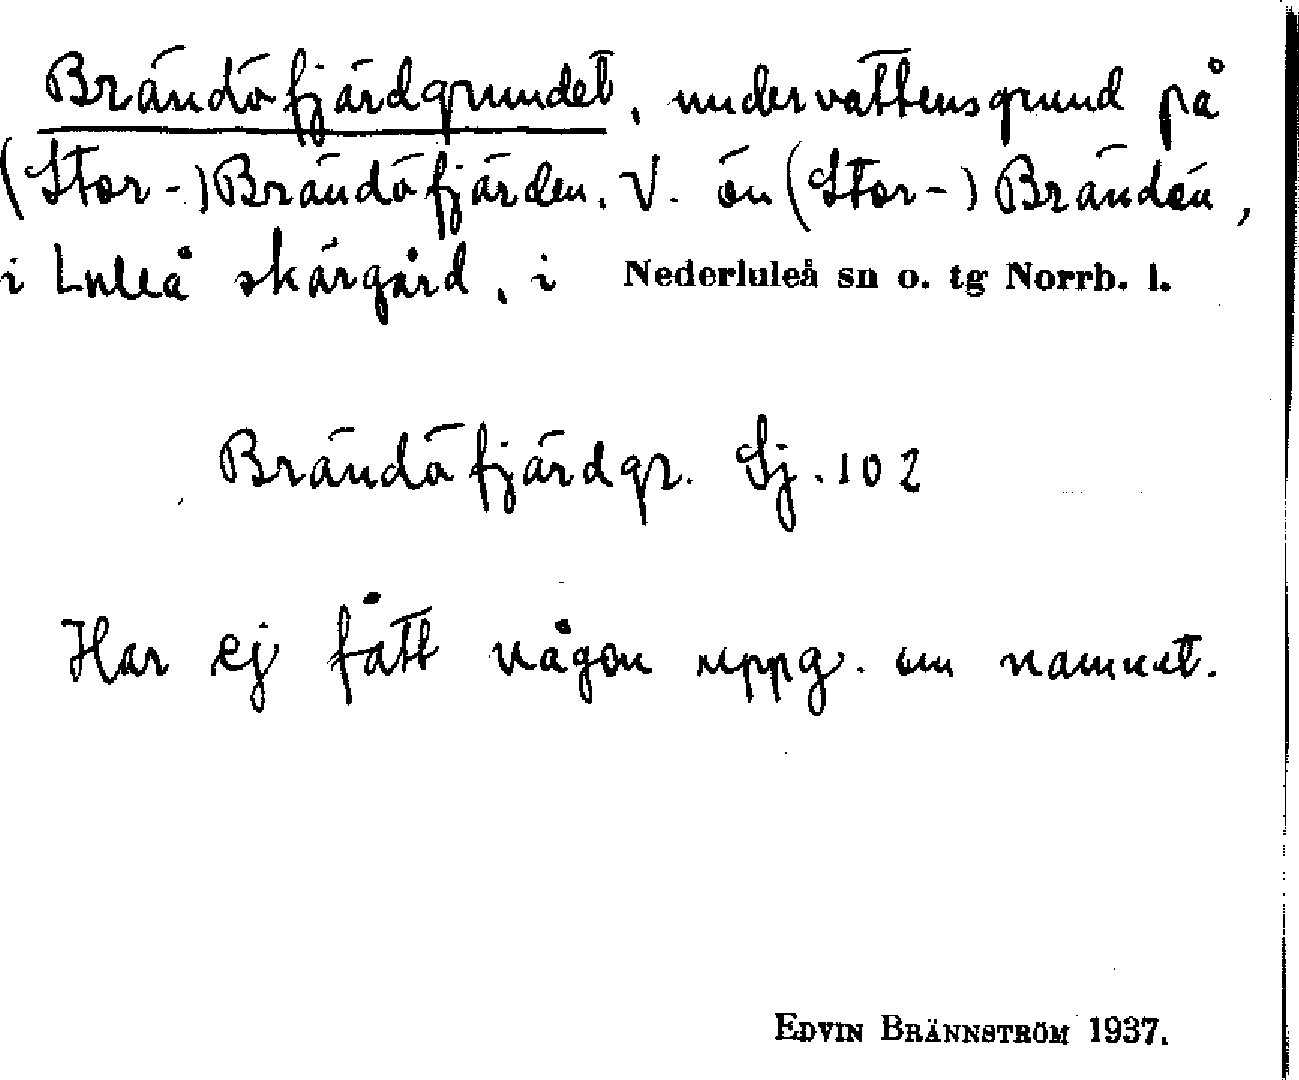 Brändöfjärdgrundet, undervattensgrund på
(Stor-) Brändöfjärden. V. ön (Stor-) Brändön,
i Luleå skärgård, i Nederluleå sn o. tg Norrb. l.
Brändöfjärdgr. Sj. 102
Har ej fått någon uppg. om namnet.
EDVIN BRÄNNSTRÖM 1937.